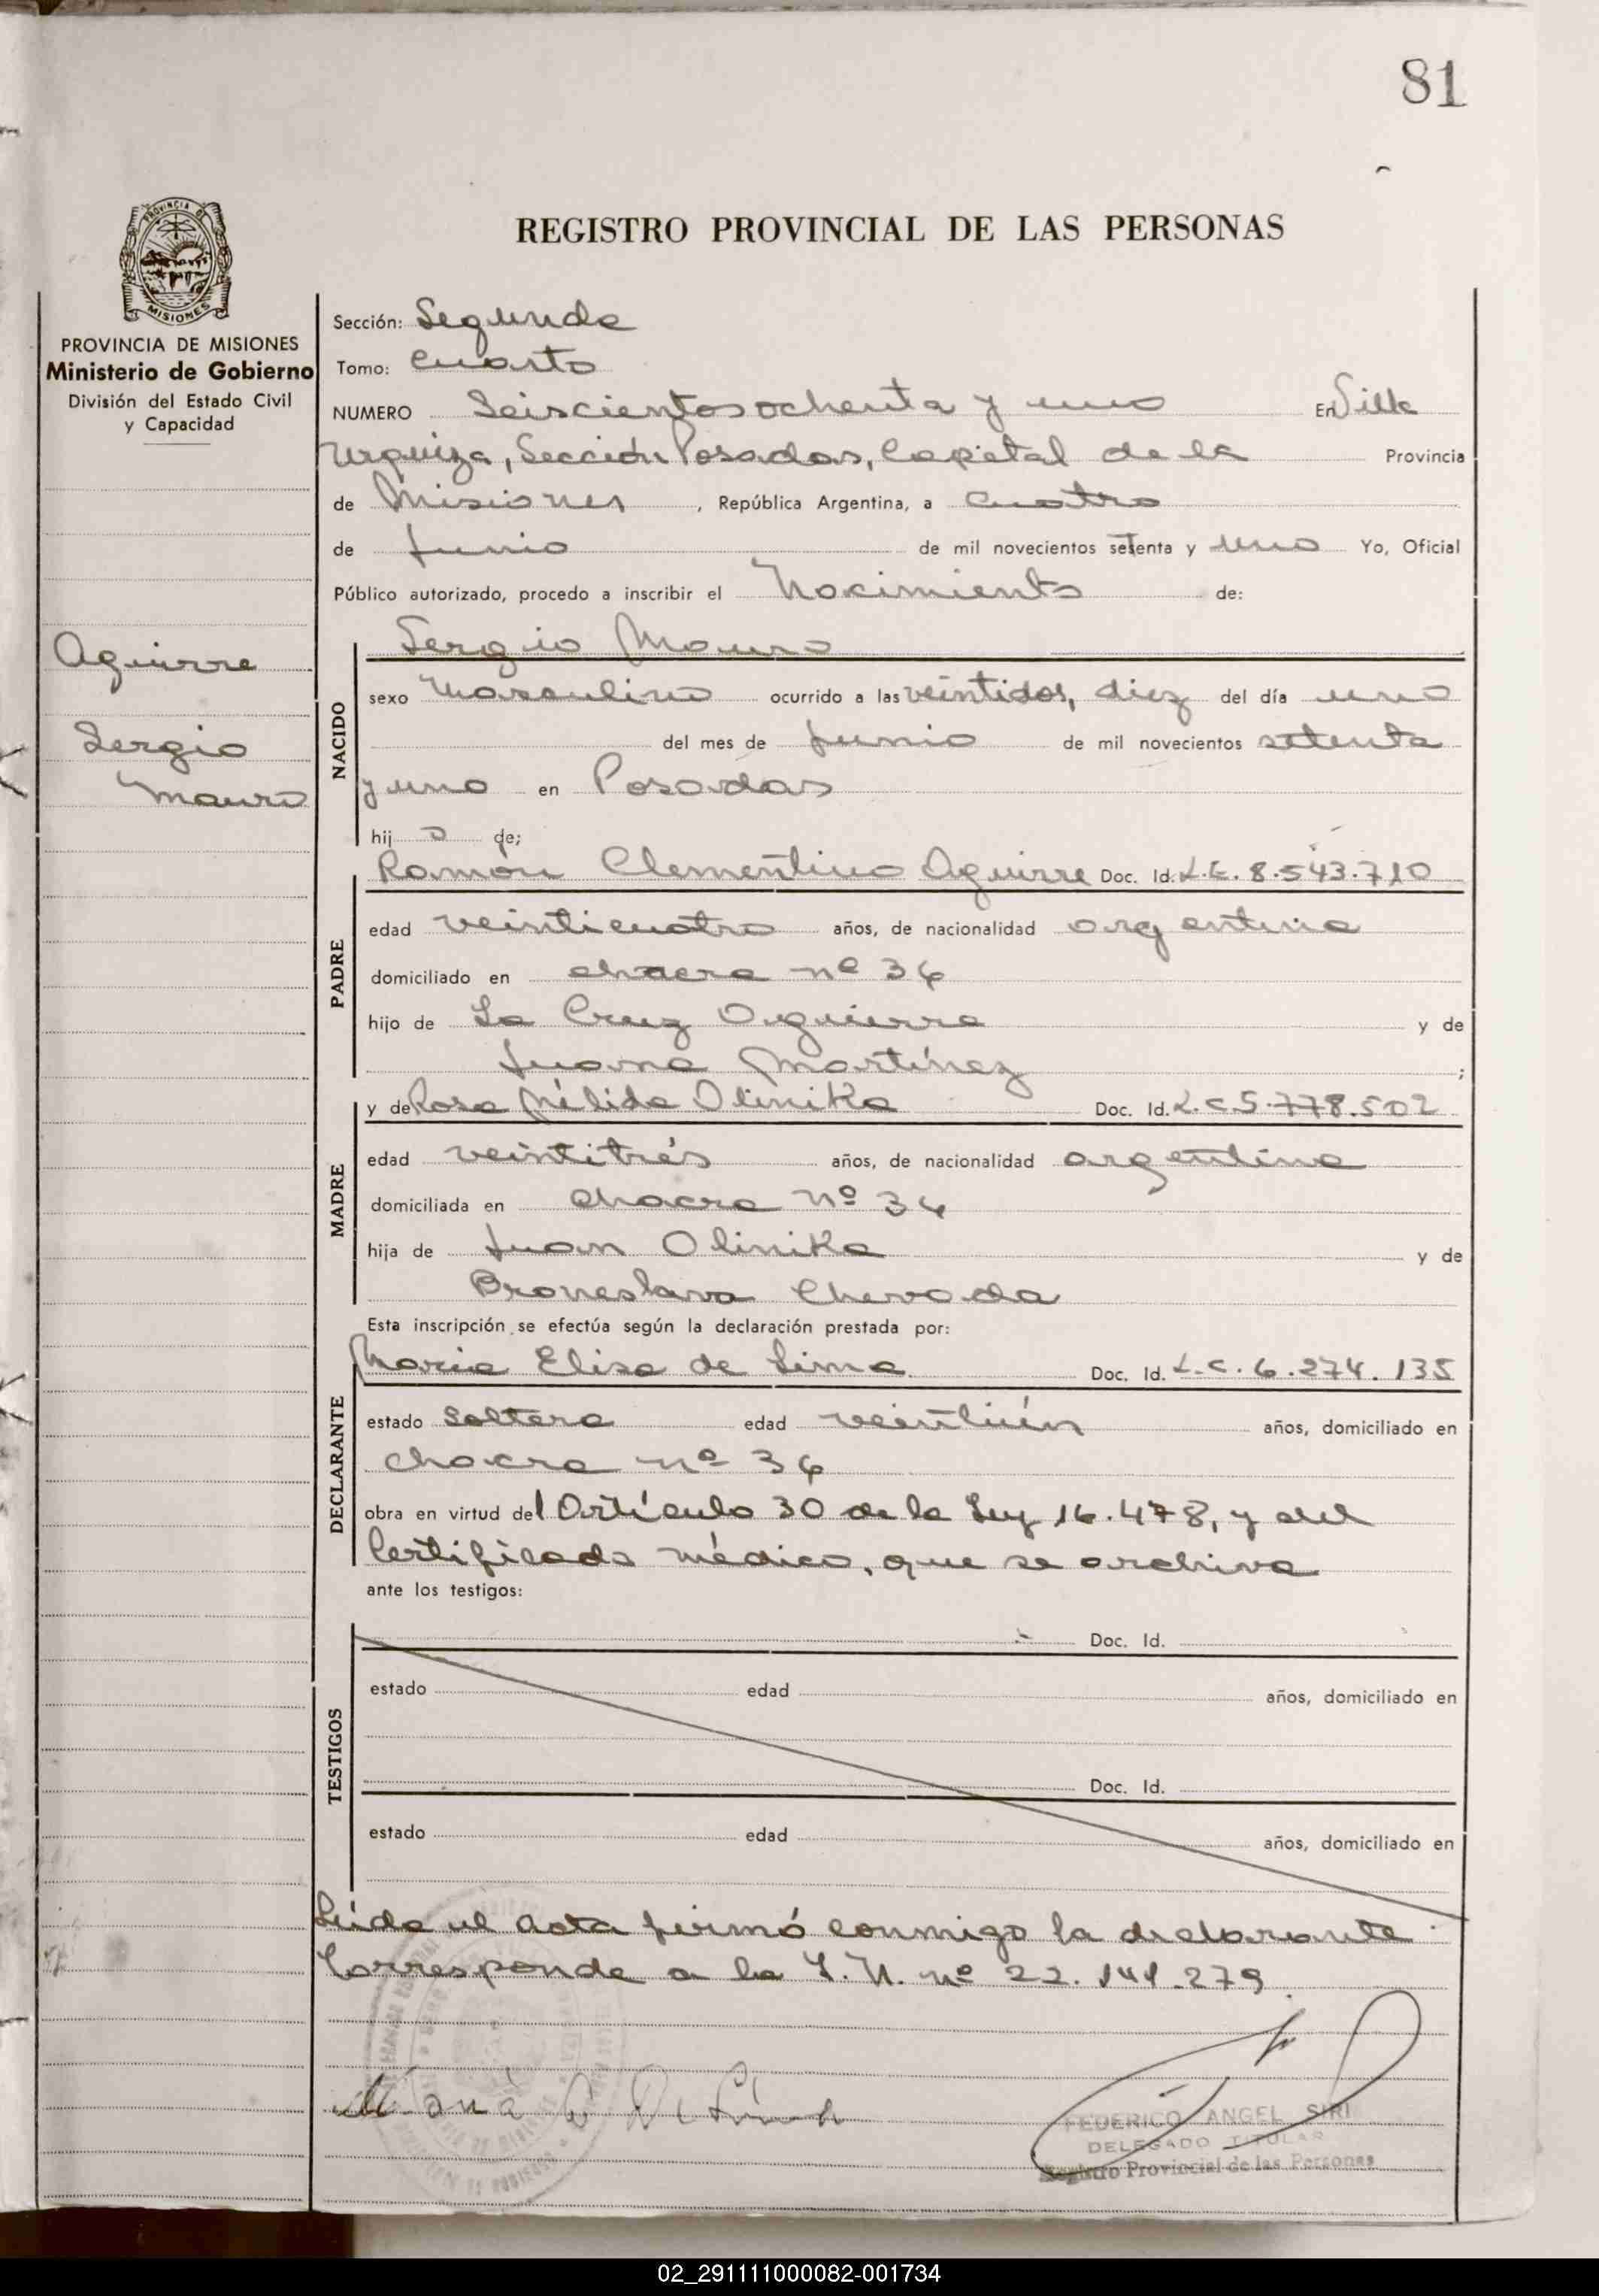 81
PROVINCIA DE
MISIONES
REGISTRO PROVINCIAL DE LAS PERSONAS
PROVINCIA DE MISIONES
Ministerio de Gobierno
División del Estado Civil
y Capacidad
Aguirre
Sergio
Mauro
Sección: Segunda
Tomo: Cuarto
NUMERO Seiscientos ochenta y uno En Villa
Urquiza, Sección Posadas, Capital de la Provincia
de Misiones, República Argentina, a cuatro
de Junio de mil novecientos setenta y uno Yo, Oficial
Público autorizado, procedo a inscribir el Nacimiento de:
Sergio Mauro
NACIDO
sexo Masculino ocurrido a las veintidos, diez del día uno
del mes de Junio de mil novecientos setenta
y uno en Posadas
hij o de;
Ramón Clementino Aguirre Doc. Id. L.E. 8.543.710
PADRE
edad veinticuatro años, de nacionalidad argentina
domiciliado en chacra nº 36
hijo de La Cruz Aguirre y de
Juana Martínez ;
y de Rosa Nélida Olinika Doc. Id. L.C 5.778.502
MADRE
edad veintitrés años, de nacionalidad argentina
domiciliada en chacra nº 36
hija de Juan Olinika y de
Broneslava Chevoda
Esta inscripción se efectúa según la declaración prestada por:
Maria Elisa de Lima Doc. Id. L.C. 6.274.135
DECLARANTE
estado soltera edad veintiún años, domiciliado en
chacra nº 36
obra en virtud del Artículo 30 de la Ley 16.478, y del
Certificado médico, que se archiva
ante los testigos:
TESTIGOS
Doc. Id.
estado edad años, domiciliado en
Doc. Id.
estado edad años, domiciliado en
Leída el acta firmó conmigo la declarante
Corresponde a la L.N. nº 22.141.279
FEDERICO ANGEL SIRI
DELEGADO TITULAR
Registro Provincial de las Personas
02_291111000082-001734